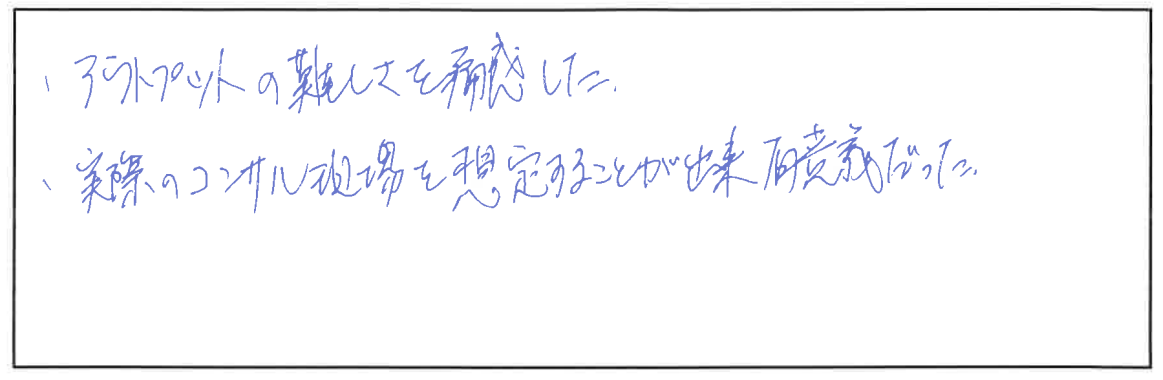 、アウトプットの難しさを痛感した。
、実際のコンサル現場を想定することが出来有意義だった。